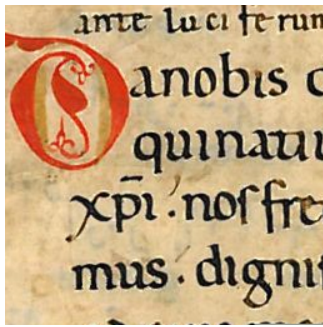 ante luciferum
Danobis
quinatu
xp̄i. nos fre
mus. digni